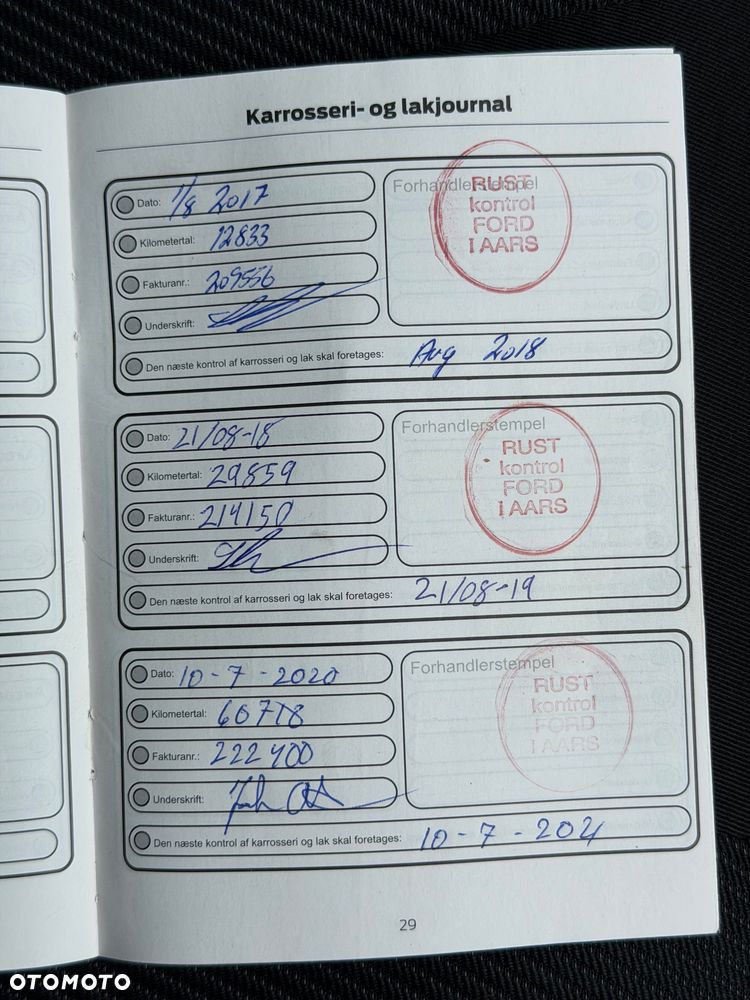 Karrosseri- og lakjournal
Dato: 1/8 2017
Kilometertal: 12833
Fakturanr.: 209556
Underskrift:
Den næste kontrol af karrosseri og lak skal foretages: Aug 2018
Forhandlerstempel
RUST
kontrol
FORD
I AARS
Dato: 21/08-18
Kilometertal: 29859
Fakturanr.: 214150
Underskrift:
Den næste kontrol af karrosseri og lak skal foretages: 21/08-19
Forhandlerstempel
RUST
kontrol
FORD
I AARS
Dato: 10-7-2020
Kilometertal: 60718
Fakturanr.: 222400
Underskrift:
Den næste kontrol af karrosseri og lak skal foretages: 10-7-2021
Forhandlerstempel
RUST
kontrol
FORD
I AARS
29
OTOMOTO